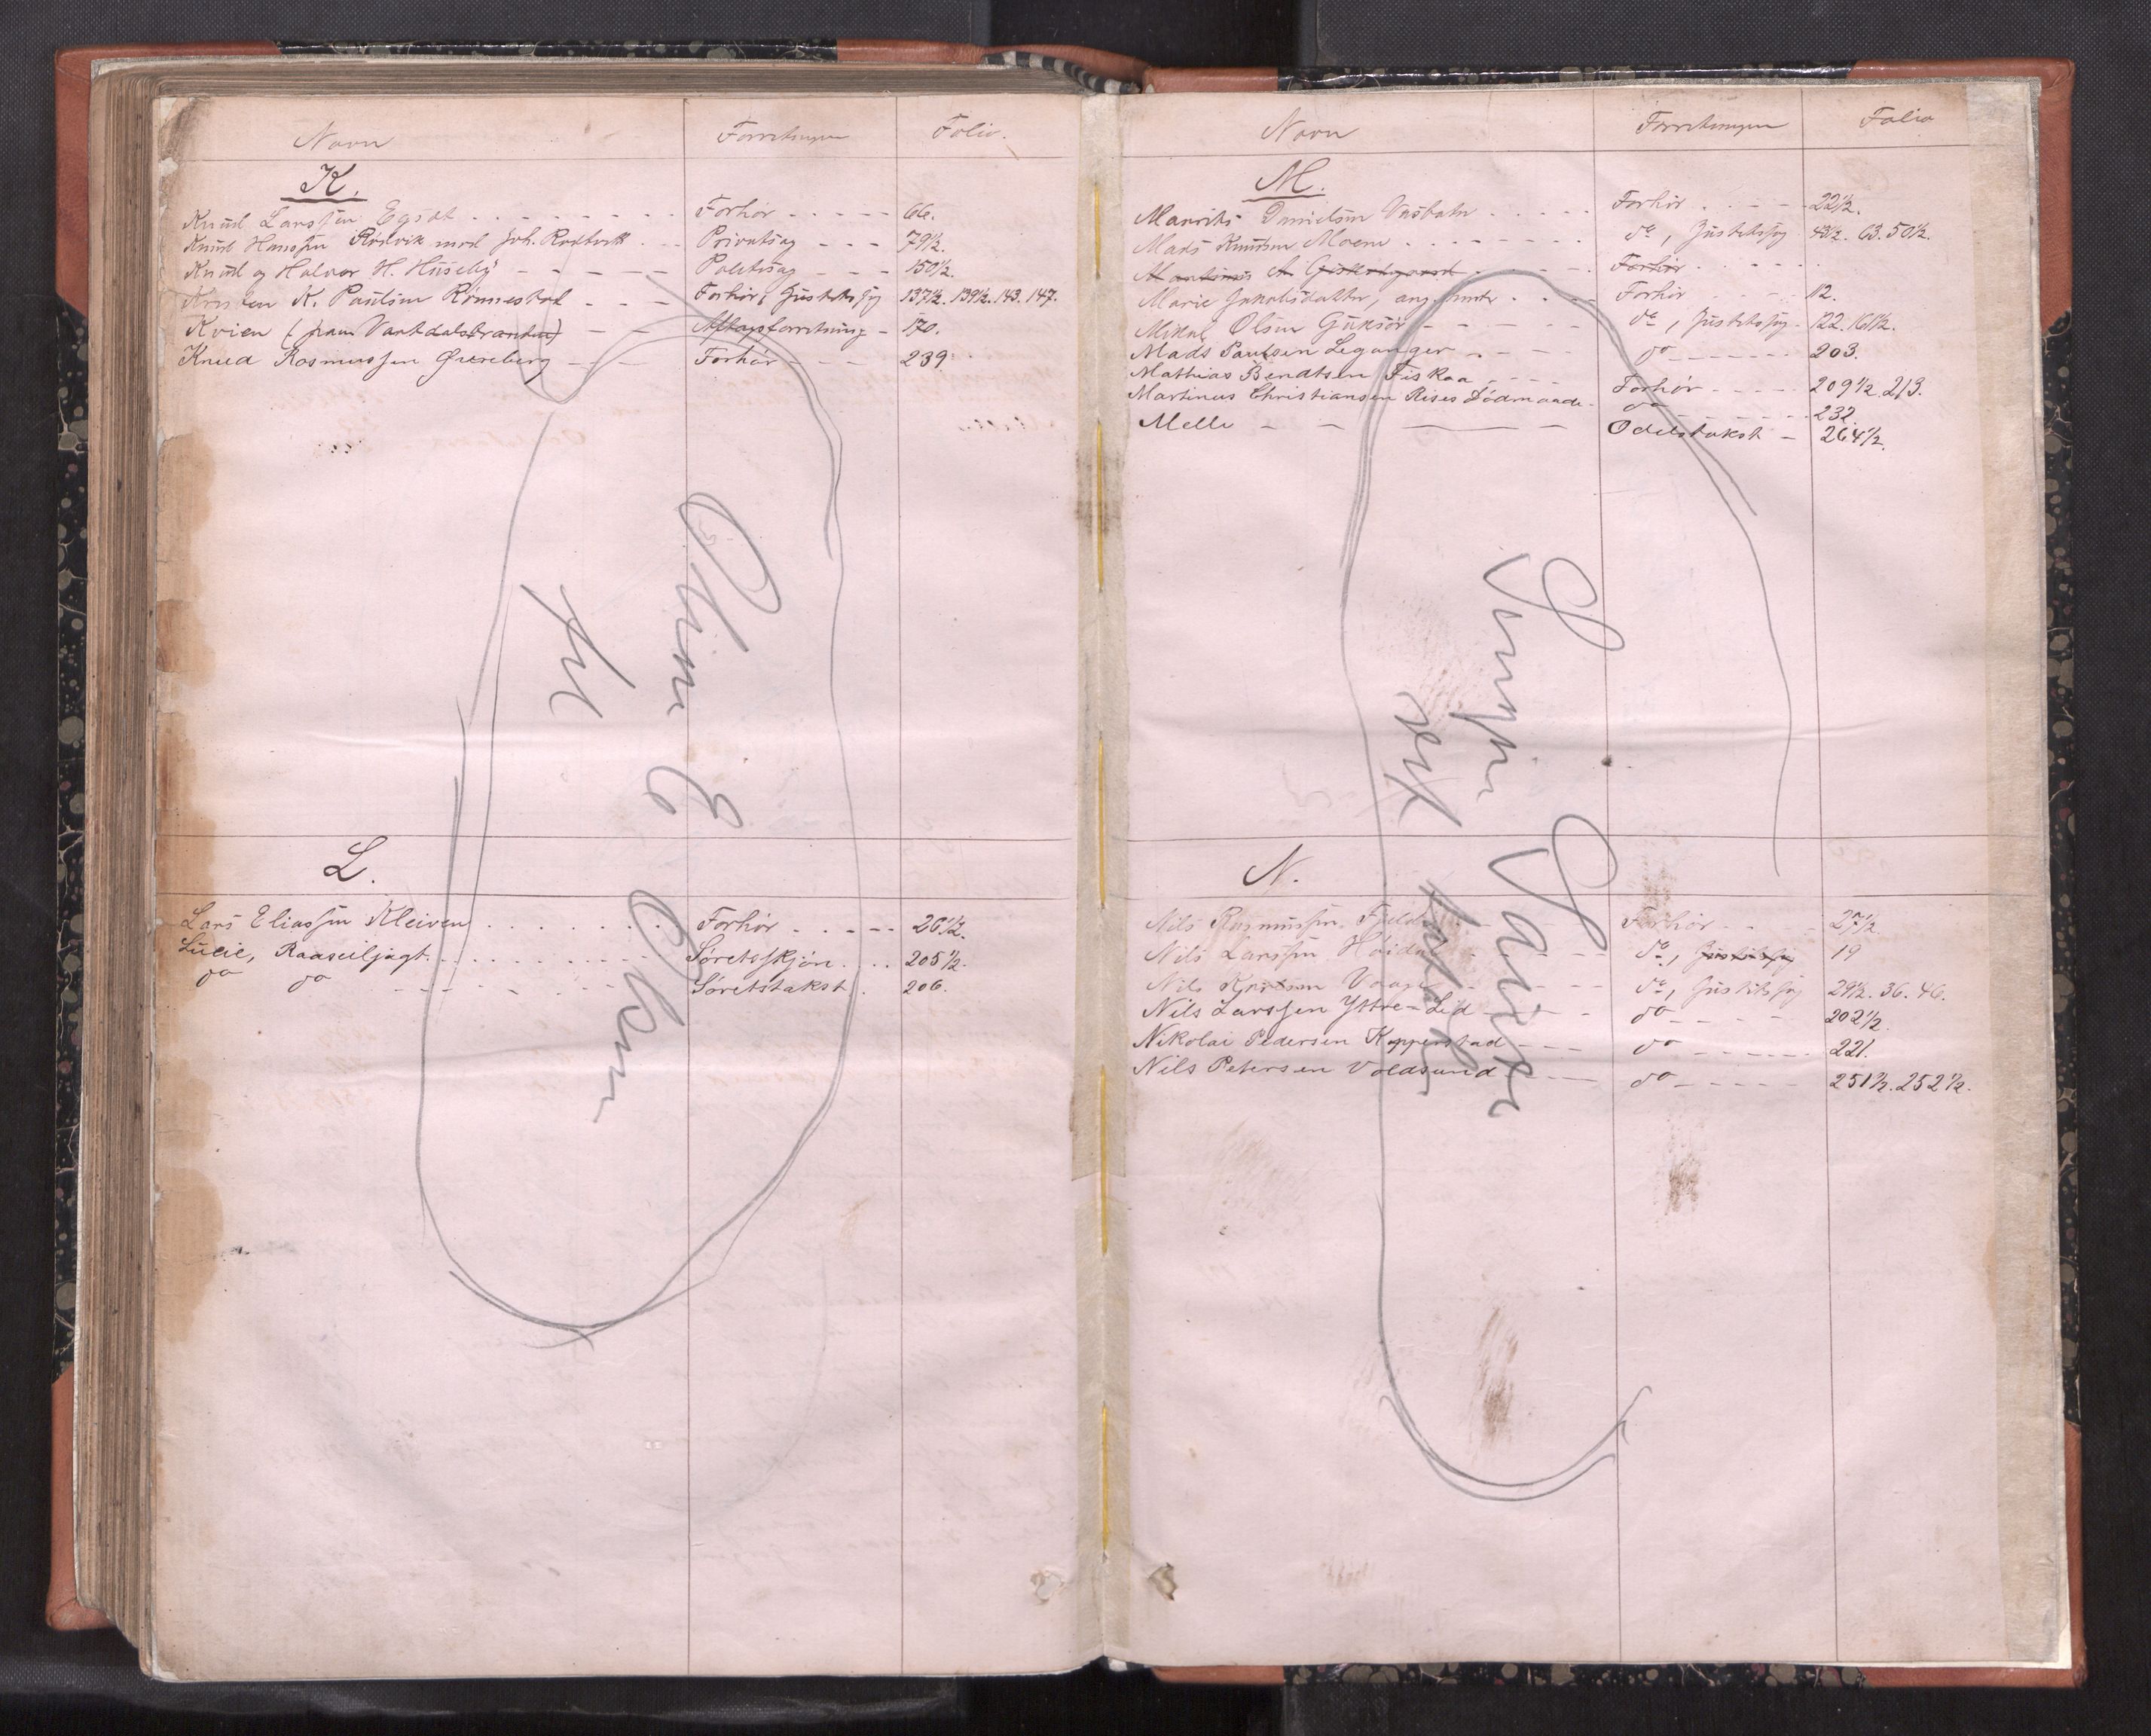 Navn Forretningen Folio.
K.
Knud Larssen Egset Forhør 66.
Knud Hanssen Rødvik mod Joh. Rødvik Privatsag 79½.
Knud og Halvor H. Huseby Politisag 150½.
Kristen K. Paulsen Rønnestad Forhør, Justitssag 137½. 139½. 143. 147.
Kvien (paa Vartdalstranden) Aftagsforretning 170.
Knud Rasmussen Forhør 239
L.
Lars Eliassen Kleiven Forhør 26½.
Lucie, Raaseiljagt Søretsskjøn 205½.
do do Søretstakst 206.
Oline E Olsen
Navn Forretningen Folio
M.
Maurits Danielsen Forhør 22½.
Mads Knutsen Moene do, Justitssag 43½. 63. 50½.
Martinus A Forhør
Marie Jakobsdatter, Forhør 12.
Mikal Olsen Gjuksør do, Justitssag 122. 161½.
Mads Paulsen Leganger do 203.
Mathias Bendtsen Fiskaa Forhør 209½. 213.
Martinus Christiansen Rises Dødmaade do 232.
Melle Odelstakst 264½.
N.
Nils Rasmussen Forhør 27½.
Nils Larssen do, Justitssag 19
Nils Knutsen Vaage do, Justitssag 29½. 36. 46.
Nils Larssen Yttre-Lid do 202½.
Nikolai Pedersen Kopperstad do 221.
Nils Petersen Voldsund do 251½. 252½.